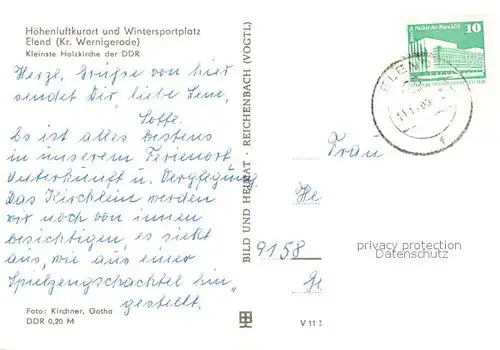 Höhenluftkurort und Wintersportplatz
Elend (Kr. Wernigerode)
Kleinste Holzkirche der DDR
Herzl. Grüße von hier
sendet Dir, liebe Lene,
Lotte.
Es ist alles bestens
in unserem Ferienort,
Unterkunft u. Verpflegung.
Das Kirchlein werden
wir noch von innen
besichtigen, es sieht
aus, wie aus einer
Spielzeugschachtel hin
gestellt.
Foto: Kirchner, Gotha
DDR 0,20 M
BILD UND HEIMAT · REICHENBACH (VOGTL)
V 11
Palast der Republik
10
ELEND
Frau
He
9158
privacy protection
Datenschutz